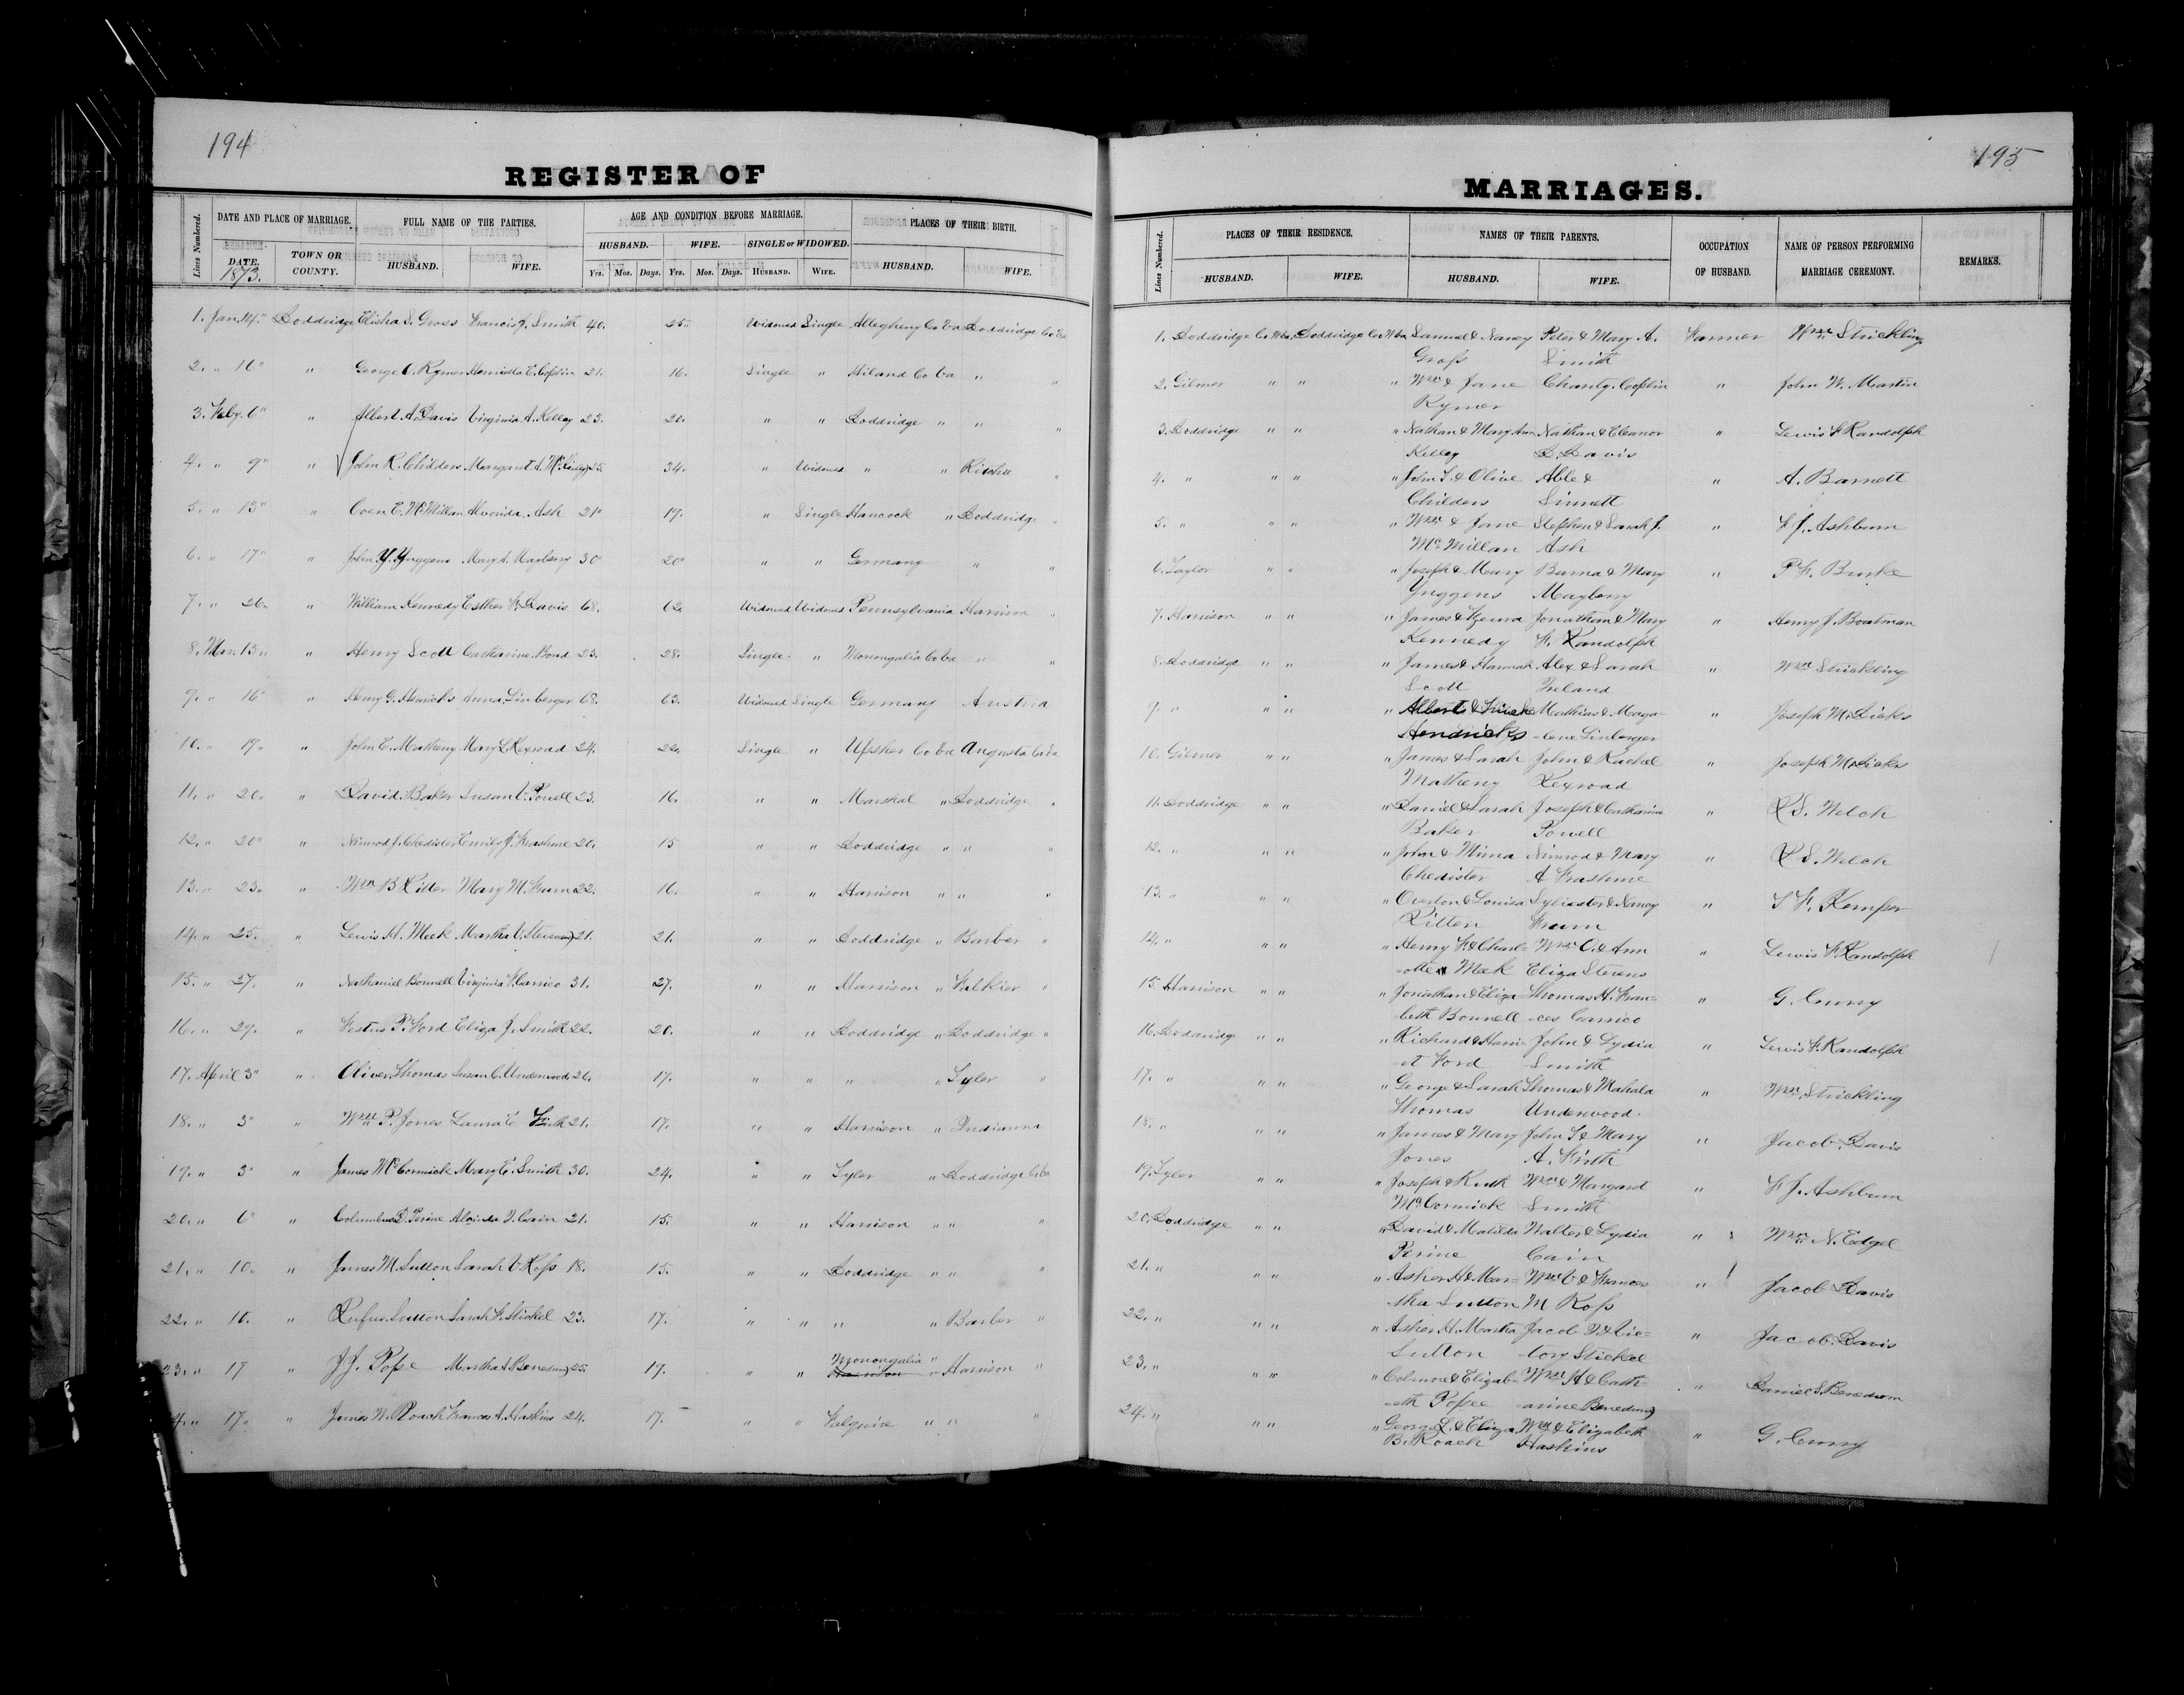 194
REGISTER OF
Lines Numbered.
DATE AND PLACE OF MARRIAGE.
FULL NAME OF THE PARTIES.
AGE AND CONDITION BEFORE MARRIAGE.
PLACES OF THEIR BIRTH.
HUSBAND. WIFE. SINGLE or WIDOWED.
DATE. TOWN OR COUNTY. HUSBAND. WIFE. Yrs. Mos. Days. Yrs. Mos. Days. HUSBAND. WIFE. HUSBAND. WIFE.
1873.
1. Jan. 14." Doddridge Elisha S. Gross Francis J. Smith 40. 25. Widowed Single Allegheny Co Va Doddridge Co Va
2. " 16" " George C. Rymer Henrietta E. Coplin 21. 16. Single " Hiland Co Va " "
3. Feby. 6" " Albert A. Davis Virginia A. Kelley 23. 20. " " Doddridge " " "
4. " 9" " John R. Childers Margaret A. 25 34. " Widowed " " Ritchie "
5. " 13" " Coen E. McMillan Alverida Ash 21" 19. " Single Hancock " Doddridge "
6. " 17" " John Y. Yuggens Mary A. Mayberry 30" 20" " " Germany " "
7. " 26. " William Kennedy Esther F. Davis 68. 62. Widowed Widowed Pennsylvania Harrison "
8. Mar. 13 " " Henry Scott Catharine Bond 23. 28. Single. " Monongalia Co Va " "
9. " 16" " Henry G. Henricks Anna Linberger 68. 63. Widowed Single Germany Austria
10. " 19. " John E. Matheny Mary L. Rexroad 24. 22. Single " Upsher Co Va Augusta Co Va
11. " 20. " David Baker Susan V. Powell 23. 16. " " Marshal " Doddridge "
12. " 20" " Nimrod J. Chedister Emily J. Frashure 20. 15 " " Doddridge " " "
13. " 23. " Wm B Ritter Mary M. Frum 22. 16. " " Harrison " " "
14. " 25. " Lewis H. Meek Martha V. Stevens 21. 21. " " Doddridge " Barber "
15. " 27. " Nathaniel Bonnell Virginia F. Carrico 31. 27. " " Harrison " Falkier "
16. " 29. " Festus P. Ford Eliza J. Smith 22. 20. " " Doddridge " Doddridge "
17. April 3" " Oliver Thomas Susan C. Underwood 26. 17. " " " " Tyler "
18. " 3" " Wm P. Jones Laura E Firth 21. 17. " " Harrison " Indianna
19. " 3" " James McCormick Mary E. Smith 30. 24. " " Tyler " Doddridge Co Va
20. " 6" " Columbus D. Perine Alcinda J. Cain 21. 15. " " Harrison " " "
21. " 10. " James M. Sutton Sarah V. Ross 18. 15. " " Doddridge " " "
22. " 10. " Rufus Sutton Sarah F. Stickel 23. 17. " " " " Barber "
23. " 17 " J.J. Pope Martha A. Benedum 25. 17. " " Monongalia " Harrison "
Harrison
4. " 17. " James W. Roach Frances A. Haskins 24. 17. " " " " "
195
MARRIAGES.
Lines Numbered.
PLACES OF THEIR RESIDENCE.
NAMES OF THEIR PARENTS.
OCCUPATION OF HUSBAND.
NAME OF PERSON PERFORMING MARRIAGE CEREMONY.
REMARKS.
HUSBAND. WIFE. HUSBAND. WIFE.
1. Doddridge Co W Va Doddridge Co W Va Samuel & Nancy Peter & Mary A. Farmer Wm Strickling
Gross Smith
2. Gilmer " " " Wm & Jane Coplin " John W. Martin
Rymer
3. Doddridge " " " Nathan & Mary Ann Nathan & Eleanor " Lewis F. Randolph
Kelley D. Davis
4. " " " " John S. & Olive Able & " A. Barnett
Childers Sinnett
5. " " " " Wm & Jane Stephen & Sarah J. " F. J. Ashburn
McMillan Ash
6. Taylor " " " Joseph & Mary Barna & Mary " P. F. Burke
Yuggens Mayberry
7. Harrison " " " James & Jonathan & Mary " Henry J. Boatman
Kennedy F. Randolph
8. Doddridge " " " James & Hannah Alex & Sarah " Wm Strickling
Scott Ireland
9. " " " " Albert & Mathias & Maga- " Joseph M. Dicks
Hendricks -lene Linberger
10. Gilmer " " " James & Sarah John & Rachel " Joseph M. Dicks
Matheny Rexroad
11. Doddridge " " " Daniel & Sarah Joseph & Catharine " R S. Welch
Baker Powell
12. " " " " John & Mima Nimrod & Mary " R S. Welch
Chedister A Frashure
13. " " " " Overton & Louisa Sylvaster & Nancy " S F. Kemper
Ritter Frum
14. " " " " Henry F. & Charl- Wm C. & Ann " Lewis F. Randolph
-otte Meek Eliza Stevens
15. Harrison " " " Jonathan & Eliza- Thomas H. Fran- " G. Curry
beth Bonnell -ces Carrico
16. Doddridge " " " Richard & Harri- John & Lydia " Lewis F. Randolph
-et Ford Smith
17. " " " " George & Sarah Thomas & Mahala " Wm Strickling
Thomas Underwood.
18. " " " " James & Mary John S & Mary " Jacob Davis
Jones A. Firth
19. Tyler " " " Joseph & Ruth Wm & Margaret " F. J. Ashburn
McCormick Smith
20. Doddridge " " " David & Matilda Walter & Lydia " Wm N. Edgel
Perine Cain
21. " " " " Asher H & Mar- Wm C & Frances " Jacob Davis
tha Sutton M Ross
22. " " " " Asher H. Martha Jacob & Vic- " Jacob Davis
Sutton tory Stickel
23. " " " " Colmore & Elizab- Wm H & Cath- " Daniel S. Benedum
-eth Popee -arine Benedum
24. " " " " George L. & Eliza Wm & Elizabeth " G. Curry
B. Roach Haskins